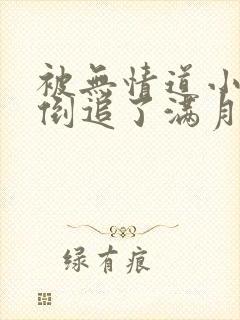 被無情道小
倒追了满月
绿有痕